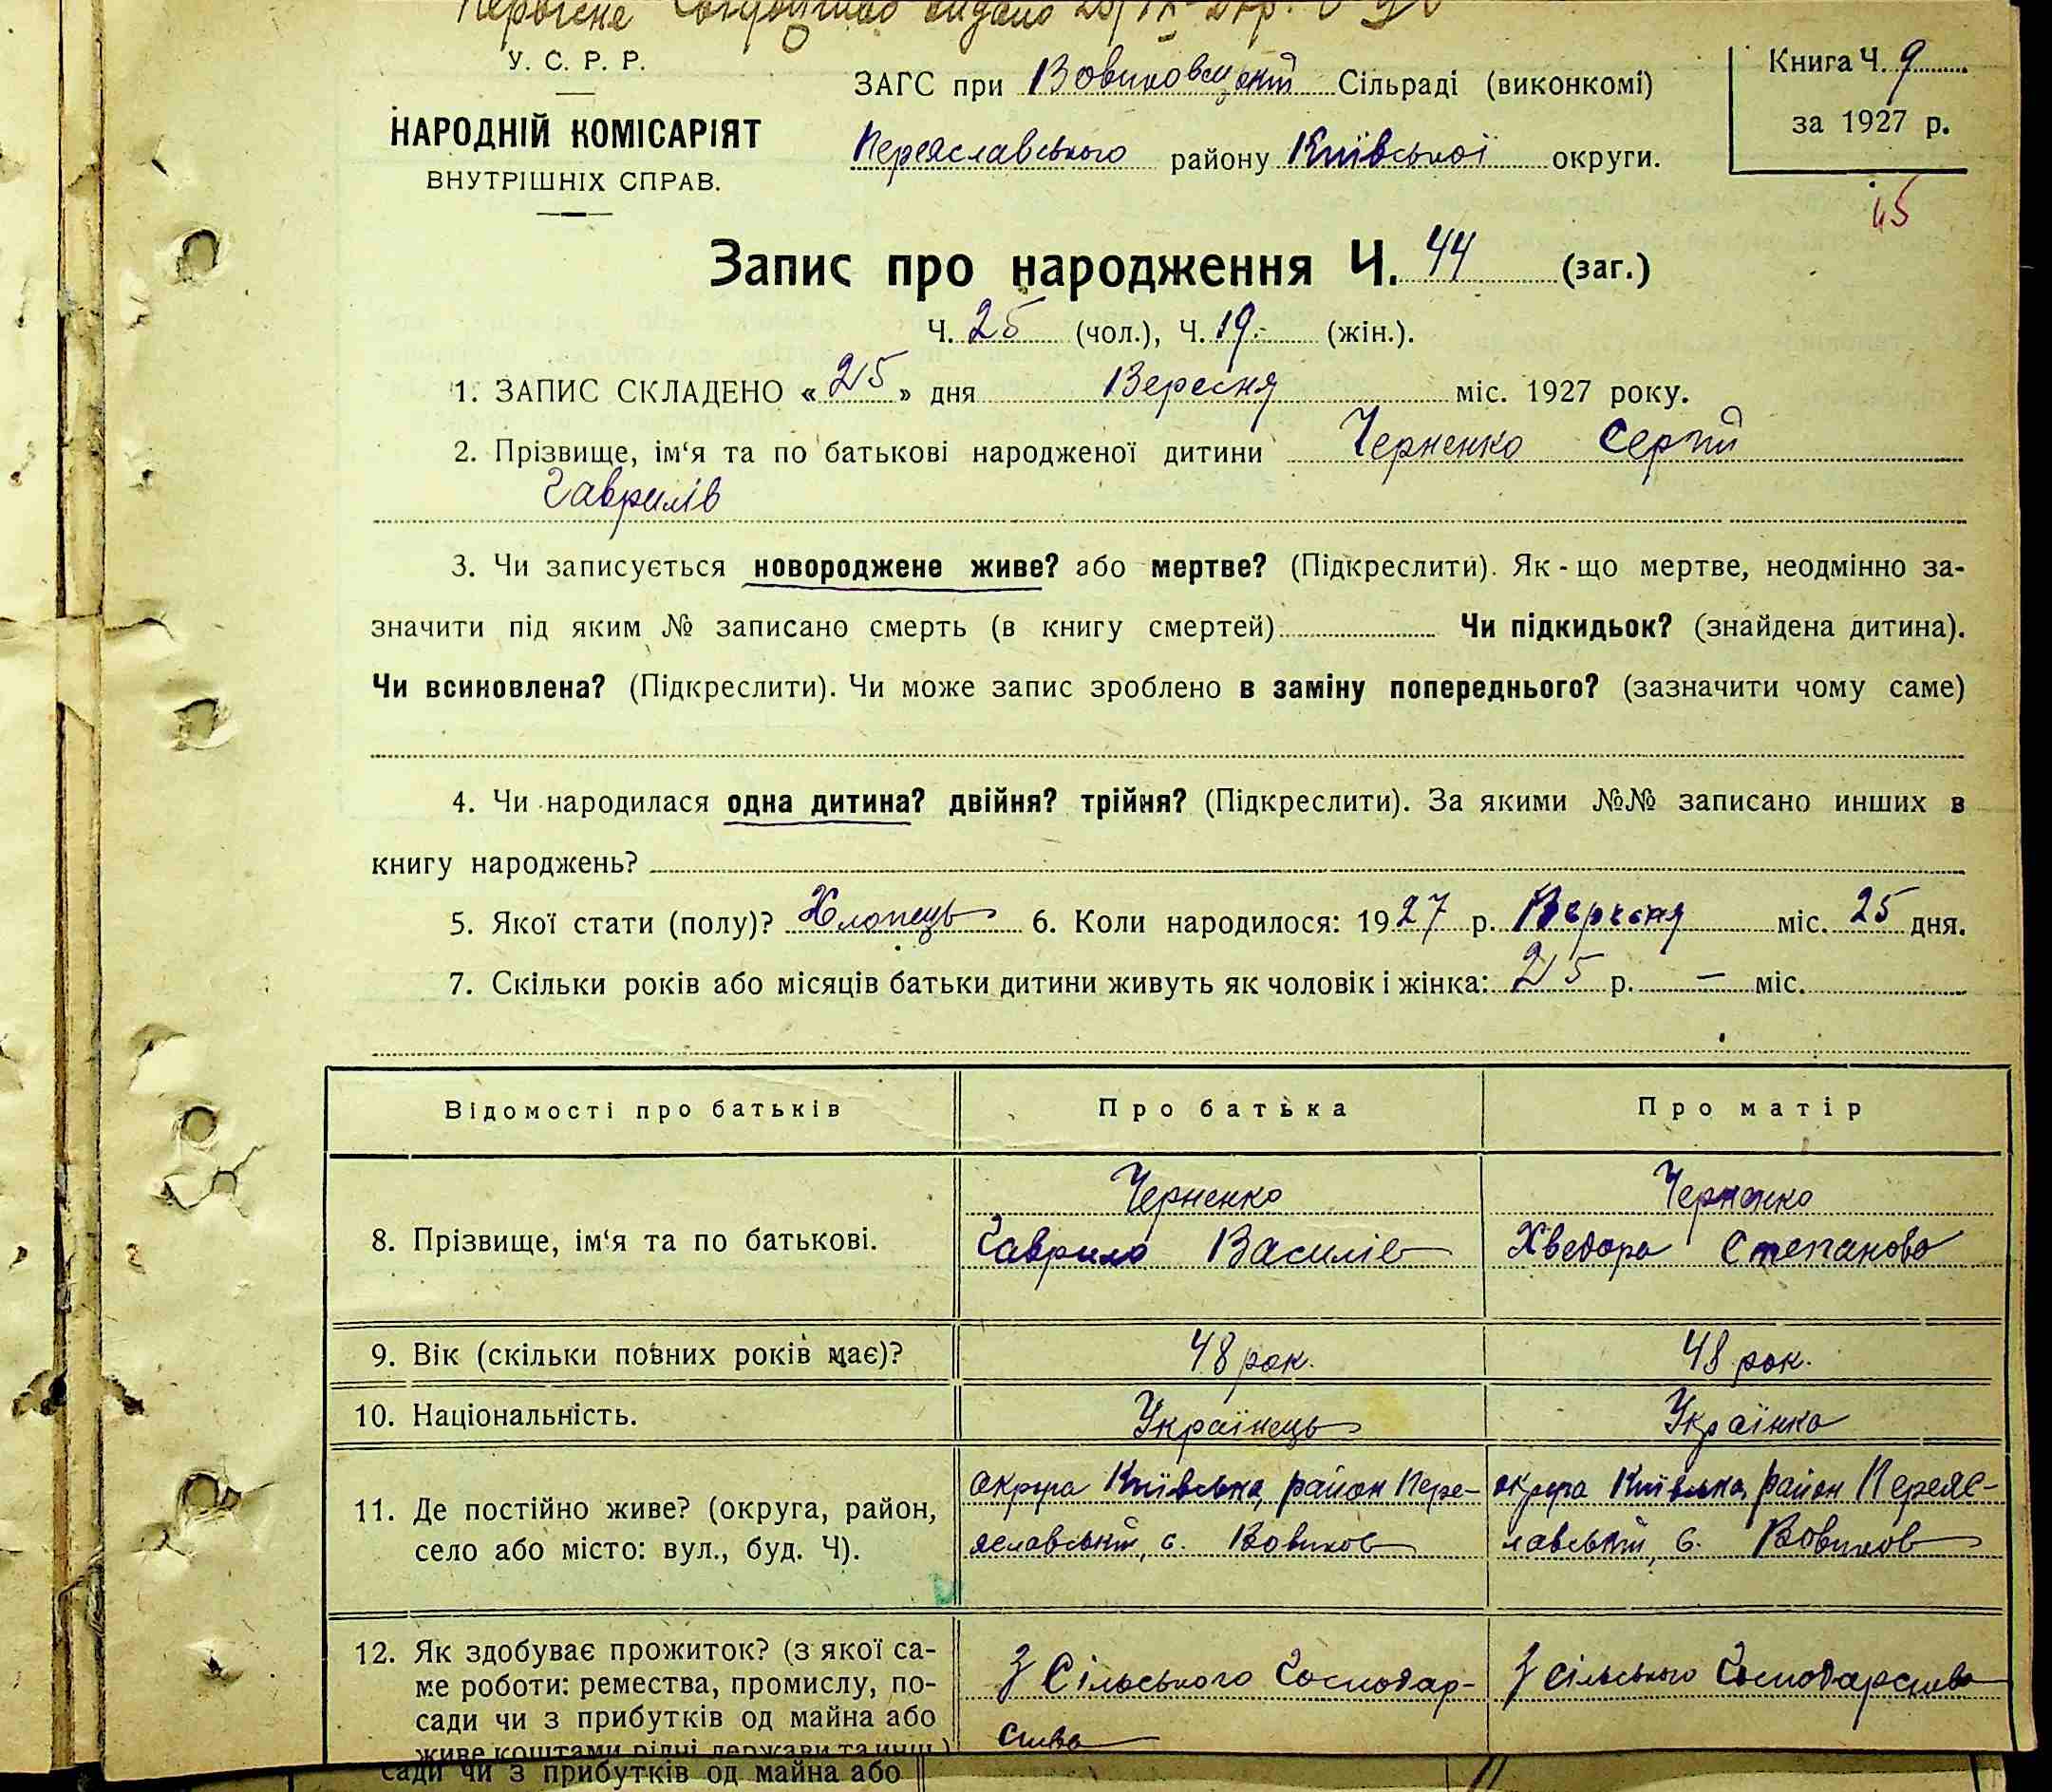 Первісне видано 25/IX-27р.
У. С. Р. Р.
НАРОДНІЙ КОМІСАРІЯТ
ВНУТРІШНІХ СПРАВ.
ЗАГС при Вовчковській Сільраді (виконкомі)
Переяславського району Київської округи.
Книга Ч. 9
за 1927 р.
45
Запис про народження Ч. 44 (заг.)
Ч. 25 (чол.), Ч. 19.- (жін.).
1. ЗАПИС СКЛАДЕНО «25» дня Вересня міс. 1927 року.
2. Прізвище, ім‘я та по батькові народженої дитини Черненко Сергій
Гаврилів
3. Чи записується новороджене живе? або мертве? (Підкреслити). Як-що мертве, неодмінно за-
значити під яким № записано смерть (в книгу смертей) Чи підкидьок? (знайдена дитина).
Чи всиновлена? (Підкреслити). Чи може запис зроблено в заміну попереднього? (зазначити чому саме)
4. Чи народилася одна дитина? двійня? трійня? (Підкреслити). За якими №№ записано инших в
книгу народжень?
5. Якої стати (полу)? Хлопець 6. Коли народилося: 1927 р. Вересня міс. 25 дня.
7. Скільки років або місяців батьки дитини живуть як чоловік і жінка: 25 р. — міс.
Відомості про батьків Про батька Про матір
8. Прізвище, ім‘я та по батькові.
Черненко
Гаврило Василів
Черненко
Хведора Степанова
9. Вік (скільки повних років має)? 48 рок. 48 рок.
10. Національність. Українець Українка
11. Де постійно живе? (округа, район,
село або місто: вул., буд. Ч).
округа Київська, район Пере-
яславській, с. Вовчков
округа Київська, район Переяс-
лавській, с. Вовчков
12. Як здобуває прожиток? (з якої са-
ме роботи: ремества, промислу, по-
сади чи з прибутків од майна або
живе коштами рідні держави та инш.)
З Сільського Господар-
ства
З сільського Господарства
сади чи з прибутків од майна або